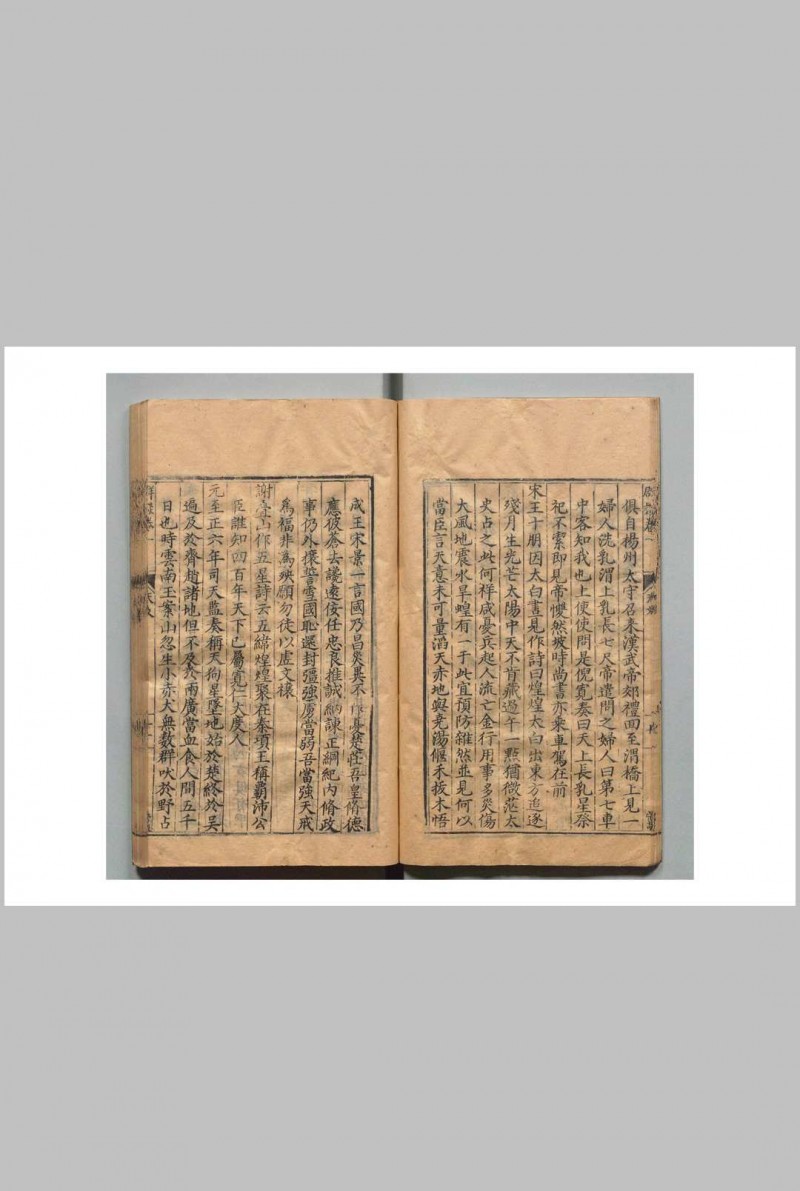 俱自揚州太守召來漢武帝郊禮回至渭橋上見一
婦人洗乳渭上乳長七尺帝遣問之婦人曰第七車
中客知我也上使使問是倪寬奏曰天上長乳星祭
祀不潔即見帝懓然坡時尚書亦乘車駕在前
宋王十朋因太白晝見作詩曰煌煌太白出東方追逐
殘月生光芒太陽中天不肯藏過午一點猶微茫太
史占之此何祥咸憂兵起人流亡金行用事多災傷
大風地震水旱蝗有一于此宜預防雜然並見何以
當臣言天意未可量滔天赤地與堯湯偃禾拔木悟
成王宋景一言國乃昌災異不作憂楚莊吾皇脩德
應彼蒼去讒遠佞任忠良推誠納諫正綱紀內脩政
事仍外攘誓雪國恥還封疆強虜當弱吾當強天戒
為福非為殃願勿徒以虛文禳
謝疊山作五星詩云五緯煌煌聚在秦項王稱霸沛公
臣誰知四百年天下已屬寬仁大度人
元至正六年司天監奏稱天狗星墜地始於楚終於吳
遍及於齊趙諸地但不及於兩廣當血食人間五千
日也時雲南玉案山忽生小赤犬無数群吠於野占